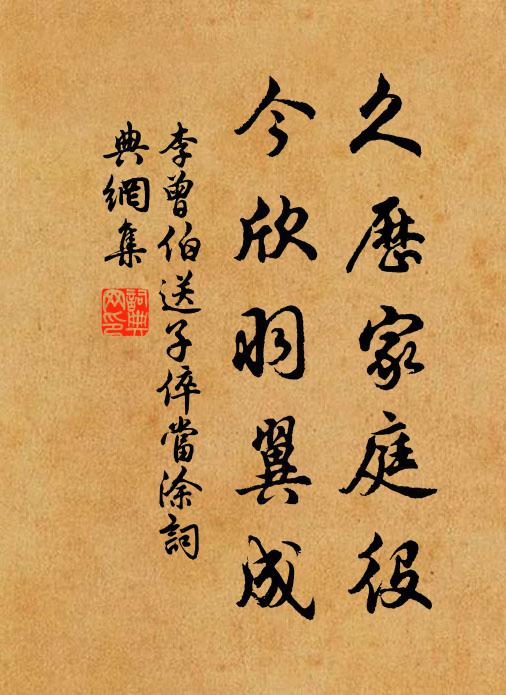 久歷家庭役
今欣羽翼成
李曾伯送子倅當涂詞
典網集
詞典
网印